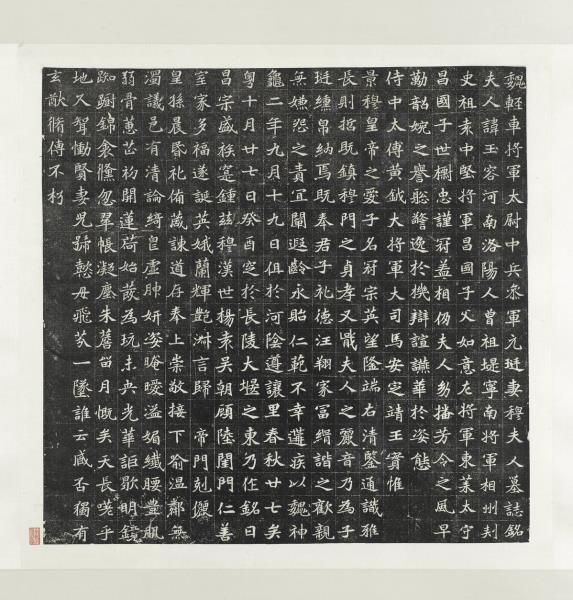 魏輕車將軍太尉中兵參軍元珽妻穆夫人墓誌銘
夫人諱玉容河南洛陽人曾祖堤寧南將軍相州刾
史祖袁中堅將軍昌國子父如意左將軍東萊太守
昌國子世樹忠謹冠盖相仍夫人幼播芳令之風早
勤韶婉之譽聡警逸於機辯諠讌華於姿態
侍中太傅黃鉞大將軍大司馬安定靖王實惟
景穆皇帝之愛子名冠宗英望隆端右清鑒通識雅
長則哲既鎮穆門之貞孝又戢夫人之麗音乃為子
珽纁帛納焉既奉君子礼德汪翔家富縎諧之歡親
無嫌怨之責宜闡遐齡永貽仁範不幸遘疾以魏神
龜二年九月十九日俎於河陰遵讓里春秋廿七矣
粵十月廿七日癸酉窆於長陵大堰之東乃作銘曰
昌宗盛族寔鍾茲穆漢世楊袁吳朝顧陸閨門仁善
室家多福遂誕英娥蘭輝艷淋言歸 帝門剋儷
皇孫晨昏礼脩葴諫道存奉上崇敬接下喻温鄰無
濁議邑有清論綺皇虛帥妍姿晻曖溢媚纖腰豐肌
弱骨蕙芷初開蓮荷始發為玩未央光華詎歇明鏡
踟躕錦衾朦忽翠帳凝塵朱簷留月慨矣天長嗟乎
地久聟慟賢妻兒蹄懿母飛苂一墜誰云臧否獨有
玄猷脩傳不朽